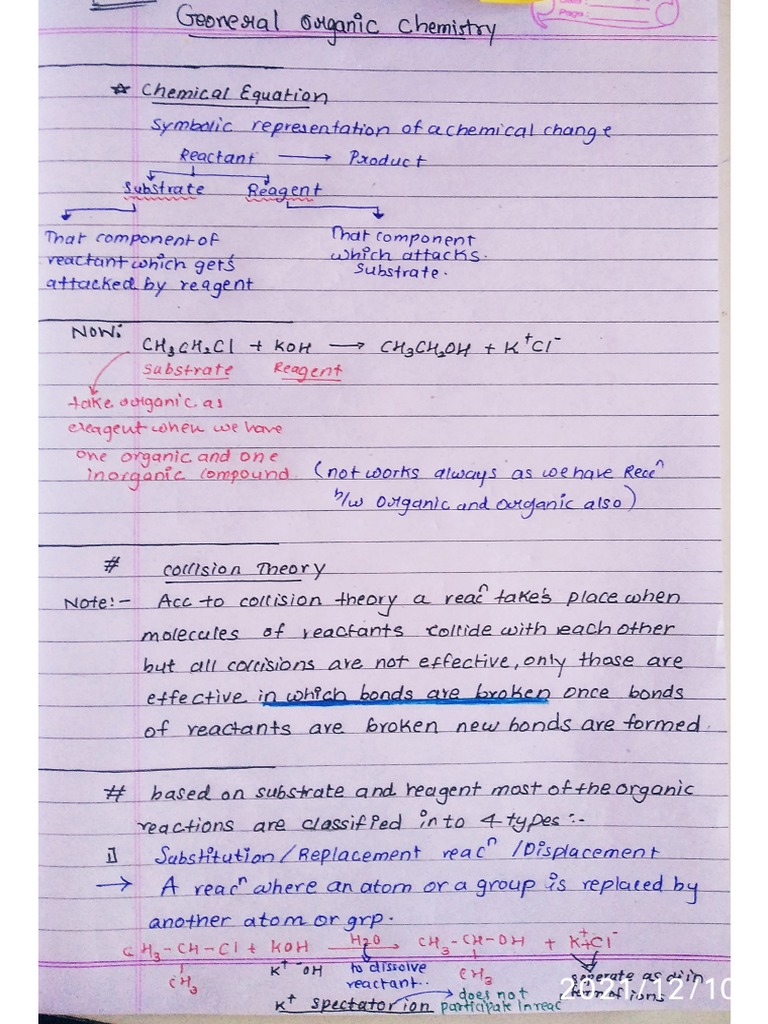 Page:
General Organic Chemistry
☆ Chemical Equation
Symbolic representation of a chemical change
Reactant → Product
Substrate Reagent
That component of
reactant which gets
attacked by reagent
That component
which attacks
substrate.
Now:
CH₃CH₂Cl + KOH → CH₃CH₂OH + K⁺Cl⁻
Substrate Reagent
take organic as
reagent when we have
one organic and one
inorganic compound
(not works always as we have Reacⁿ
b/w organic and organic also)
# Collision Theory
Note:- Acc to collision theory a reacⁿ takes place when
molecules of reactants collide with each other
but all collisions are not effective, only those are
effective in which bonds are broken once bonds
of reactants are broken new bonds are formed.
# based on substrate and reagent most of the organic
reactions are classified in to 4 types:-
1] Substitution/Replacement reacⁿ /Displacement
→ A reacⁿ where an atom or a group is replaced by
another atom or grp.
CH₃-CH-Cl + KOH H₂O→ CH₃-CH-OH + K⁺Cl⁻
CH₃ K⁺ ⁻OH to dissolve reactant.. CH₃
K⁺ spectator ion → does not participate in reac
2021/12/10